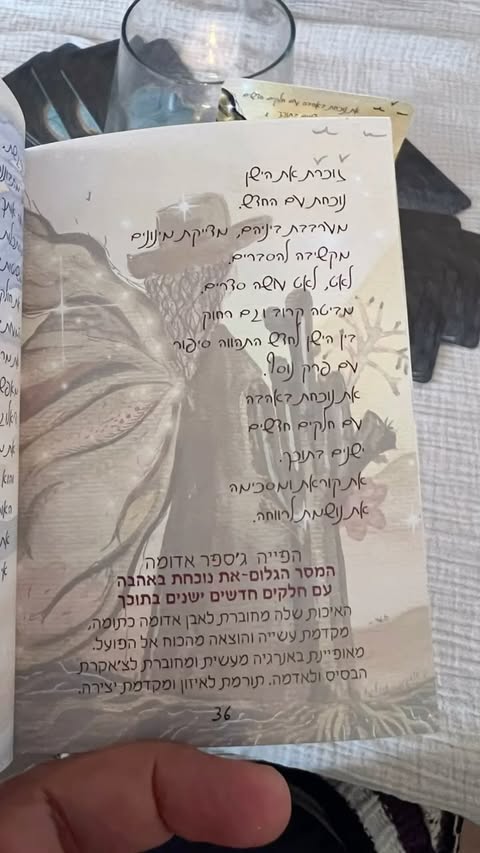 את נוכחת באהבה עם חלקים חדשים
זוכרת את הישן
נוכחת עם החדש.
מערבבת ביניהם, מדייקת מינונים
מקשיבה להסברים.
לאט, לאט עושה סדרים.
מביטה קרוב וגם רחוק
בין הישן לחדש התהווה סיפור
עם פרק נוסף.
את נוכחת באהבה
עם חלקים חדשים
ישנים בתוכך.
את קוראת ומסכימה
את נושמת לרווחה.
הפייה ג'ספר אדומה
המסר הגלום-את נוכחת באהבה
עם חלקים חדשים ישנים בתוכך
האיכות שלה מחוברת לאבן אדומה כתומה.
מקדמת עשייה והוצאה מהכוח אל הפועל.
מאופיינת באנרגיה מעשית ומחוברת לצ'אקרת
הבסיס ולאדמה. תורמת לאיזון ומקדמת יצירה.
36